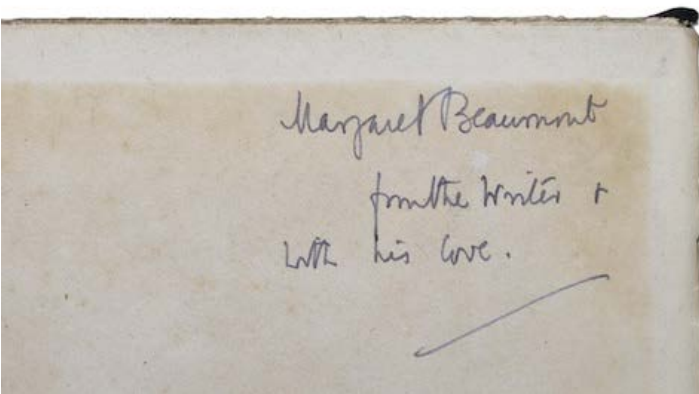 Margaret Beaumont
from the Writer &
with his love.